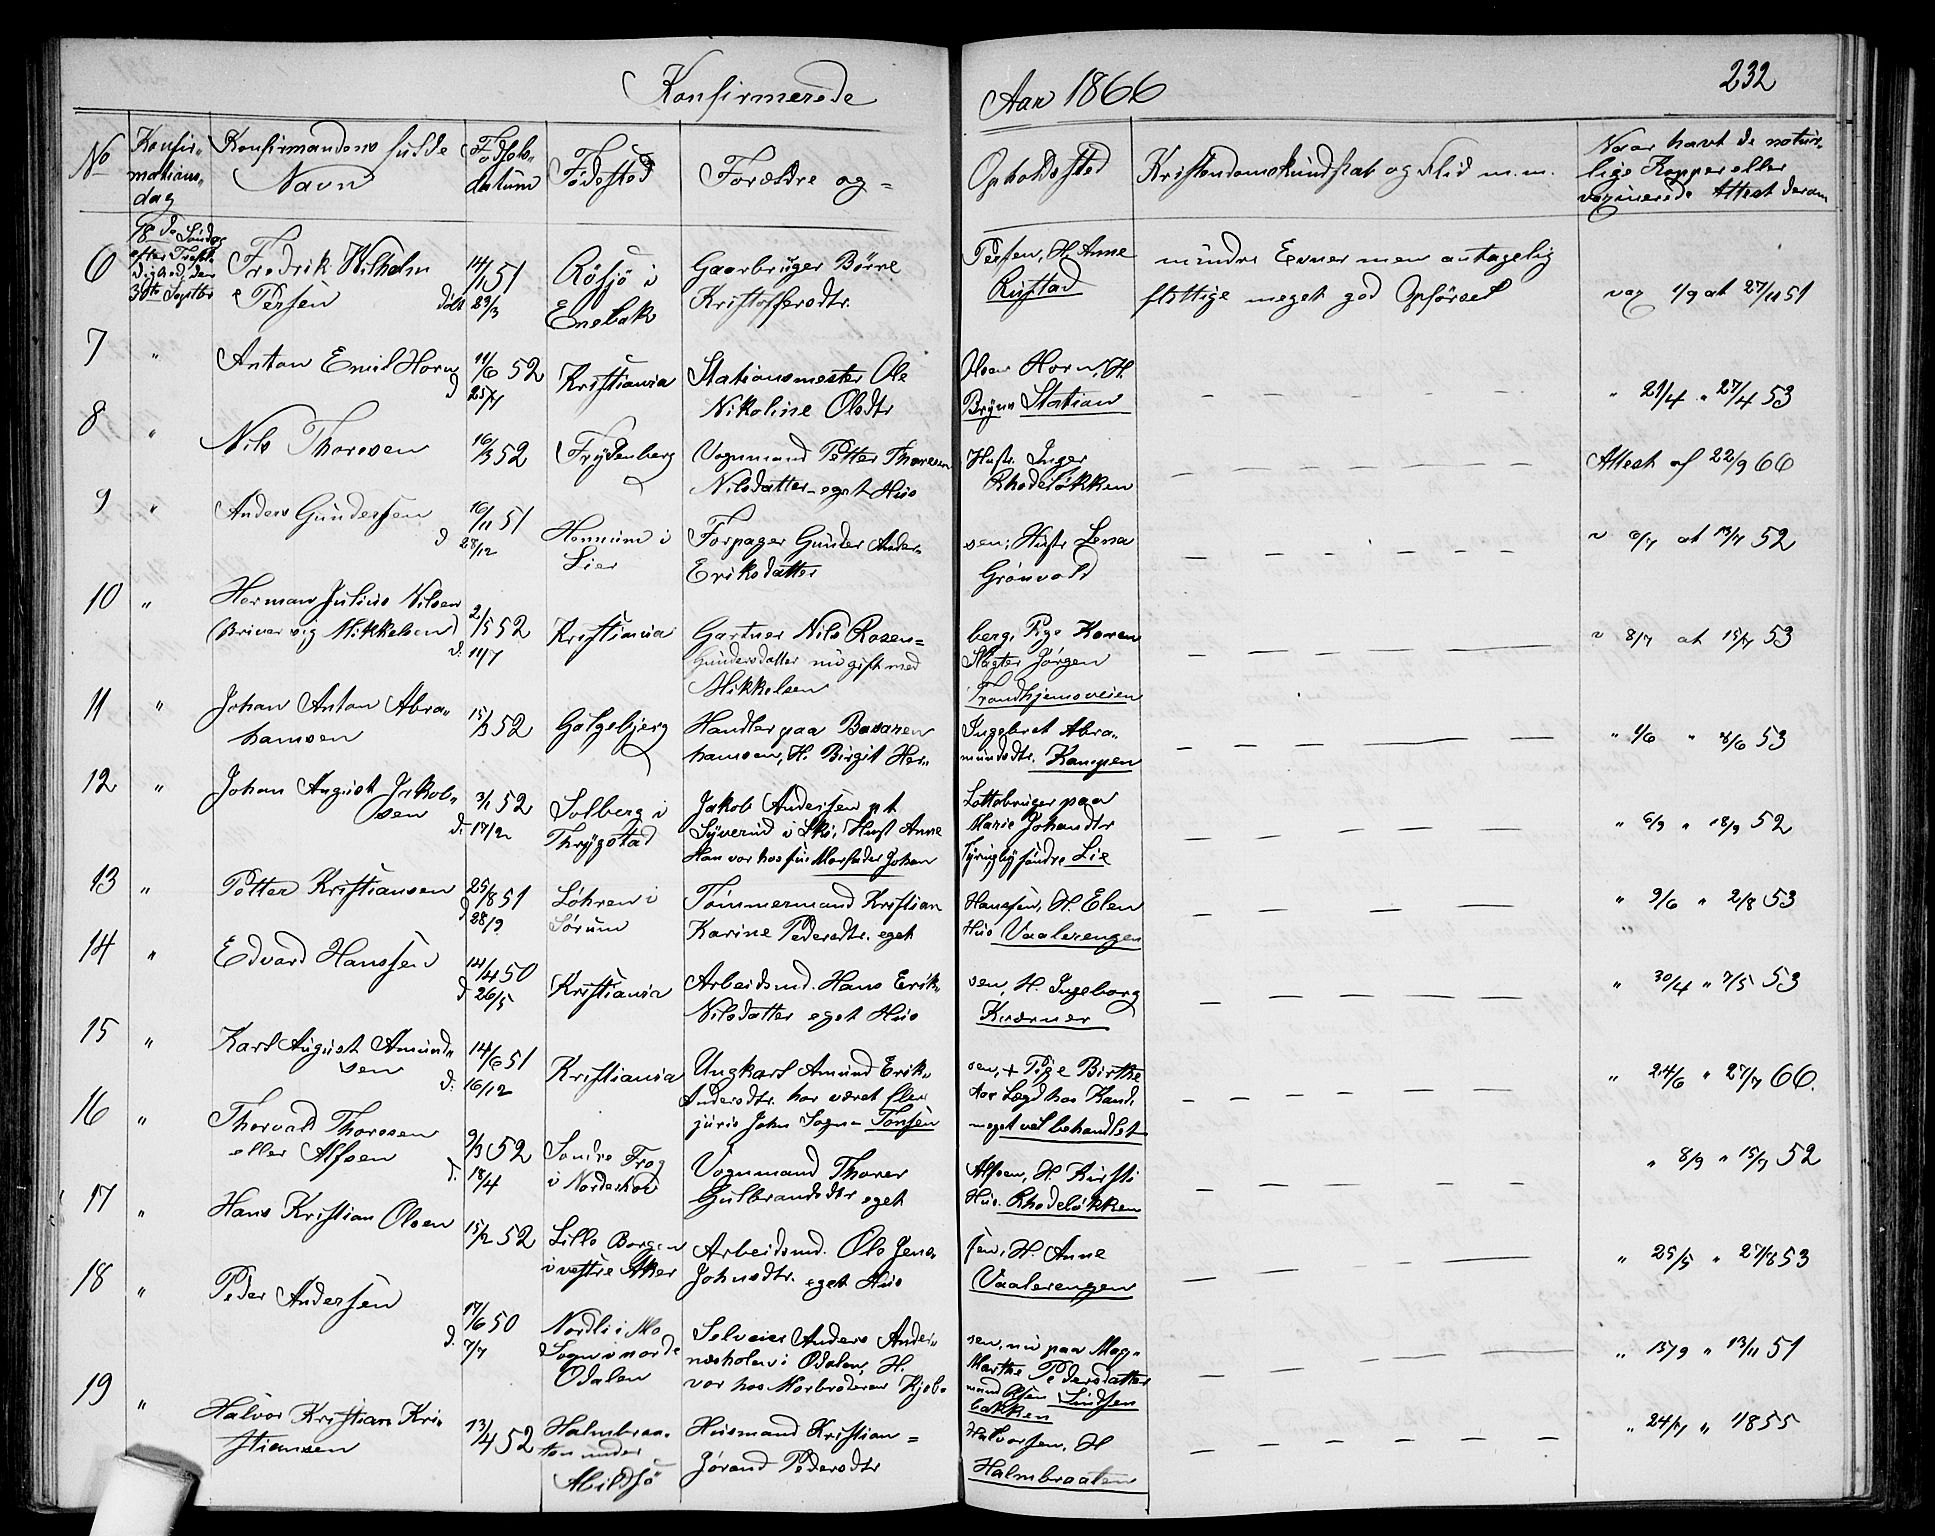 Konfirmerede
Aar 1866
232
No
Konfir-
mations-
dag
Konfirmandens fulde
Navn
Fødsels-
datum
Fødested
Forældre og =
Opholdssted
Kristendomskundskab og Flid m.m.
Naar havt de natur-
lige Kopper eller
vaxinerede Attest derom
6
18de Søndag
efter Trefol-
dighed, den
30te Septbr
Fredrik Wilhelm
Persen
14/11 51
døbt 29/3
Røsjø i
Enebak
Gaarbruger Børre
Kristoffersdtr.
Persen, H. Anne
Rustad
mindre Evner men antagelig
flittige meget god Opførsel
vax 1/9 at 27/11 51
7
"
Anton Emil Horn
d
11/6 52
25/7
Kristiania
Stationsmester Ole
Nikoline Olsdtr
Horn, H.
Bryns Station
" 21/4 " 27/4 53
8
"
Nils Thoresen
16/3 52
Frydenberg
Vognmand Petter Thoresen
Nilsdatter - eget Hus
Hustr. Inger
Rhodeløkken
Attest af 22/9 66
9
"
Anders Gundersen
d
16/11 51
28/12
Hennum i
Lier
Forpager Gunder Ander-
Eriksdatter
sen, Hustr. Lena
Grønvold
v 6/7 at 13/7 52
10
"
Herman Julius Nilsen
(skriver sig Mikkelsen)
d.
2/5 52
11/7
Kristiania
Gartner Nils Rosen=
Gundersdatter nu gift med
Mikkelsen
berg, Pige Karen
Slagter Jørgen
Trondhjemsveien
v 8/7 at 15/7 53
11
"
Johan Anton Abra-
hamsen
15/3 52
Galgebjerg
Handler paa Basaren
hamsen, H. Birgit Her-
Ingebret Abra-
mundsdtr. Kampen
" 1/6 " 8/6 53
12
"
Johan August Jakob-
sen
d.
3/1 52
17/2
Solberg i
Thrygstad
Jakob Andersen pt
Syverud i Ski, Hust Anne
Han var hos sin Morfader Johan
Lottobruger paa
Marie Johansdtr
søndre Lie
" 6/9 " 18/9 52
13
"
Petter Kristiansen
d
25/8 51
28/9
Løhren i
Sørum
Tømmermand Kristian
Karine Pedersdtr. eget
Hanssen, H. Elen
Hus Vaalerengen
" 9/6 " 2/8 53
14
"
Edvard Hanssen
d.
14/4 50
26/5
Kristiania
Arbeidsmd. Hans Erik-
Nilsdatter eget Hus
sen, H. Ingeborg
Kværner
" 30/4 " 7/5 53
15
"
Karl August Amund-
sen
d.
14/6 51
16/12
Kristiania
Ungkarl Amund Erik-
Andersdtr. har været flere
juris John Sogn - Tonsen
sen, + Pige Birthe
Aar Lægd hos Kand.
meget vel behandlet
" 24/6 " 27/7 66.
16
"
Thorvald Thoresen
eller Alfsen
d.
9/3 52
18/4
Søndre Frog
i Norderhov
Vognmand Thorer
Gulbrandsdtr eget
Alfsen, H. Kirsti
Hus. Rhodeløkken
" 8/9 " 15/9 52
17
"
Hans Kristian Olsen
15/2 52
Lille Borgen
i vestre Aker
Arbeidsmd. Ole Jens-
Johnsdtr. eget Hus
sen, H. Anne
Vaalerengen
" 25/5 " 27/8 53
18
"
Peder Andersen
d.
17/6 50
7/7
Nordli i Mo
Sogn i nordre
Odalen
Selveier Anders Ander-
i Odalen, H.
var hos Morbroderen Kjøb-
sen, nu paa Mag-
Marthe Pedersdatter
mand Olsen Lindsen
bakken
" 13/9 " 13/11 51
19
"
Halvor Kristian Kri-
stiansen
13/4 52
Halmbraa-
ten under
Abildsø
Husmand Kristian =
Jørand Pedersdtr
Halvorsen, H
Halmbraaten
" 24/7 " 1855